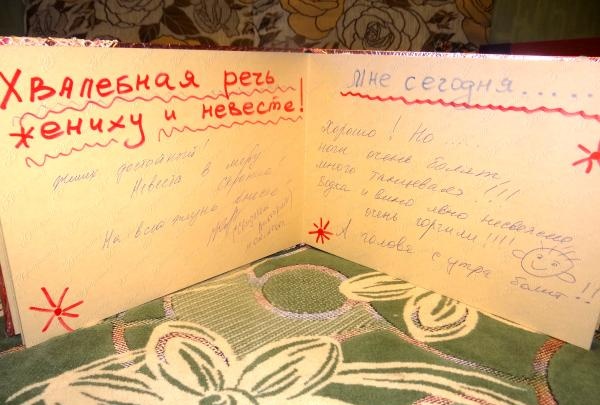 Хвалебная речь
жениху и невесте!
жених достойный!
Невеста в меру
скромна!
На всю жизнь вместе
Мне сегодня......
Хорошо! Но....
ноги очень болят,
много танцевала!!!
Водка и вино явно несвежие
очень горчили!!!
А голова с утра болит..!!